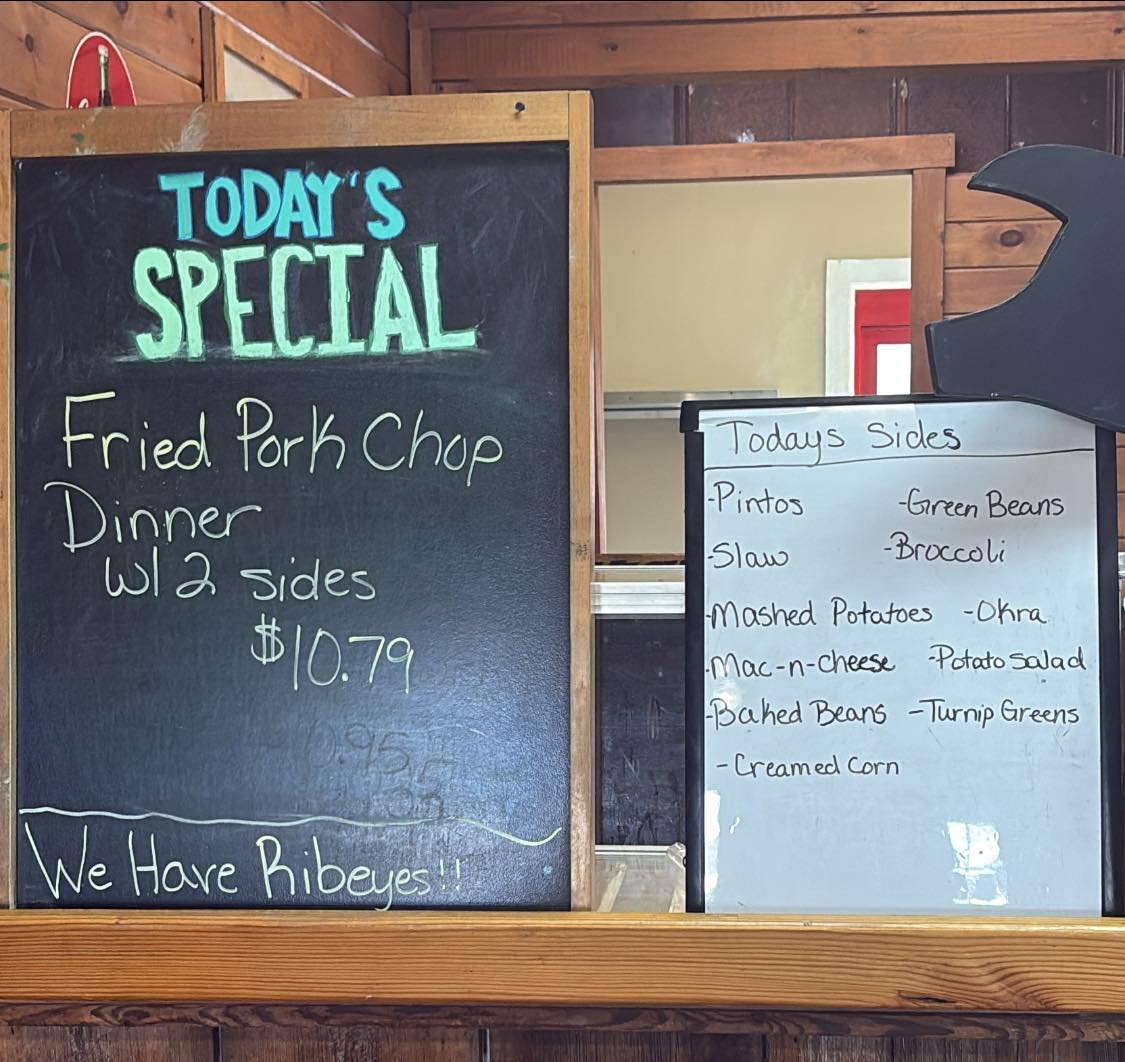 TODAY'S
SPECIAL
Fried Pork Chop
Dinner
w/ 2 sides
$10.79
We Have Ribeyes!!
Todays Sides
-Pintos
-Green Beans
-Slaw
-Broccoli
-Mashed Potatoes
-Okra
-Mac-n-cheese
-Potato Salad
-Baked Beans
-Turnip Greens
-Creamed Corn